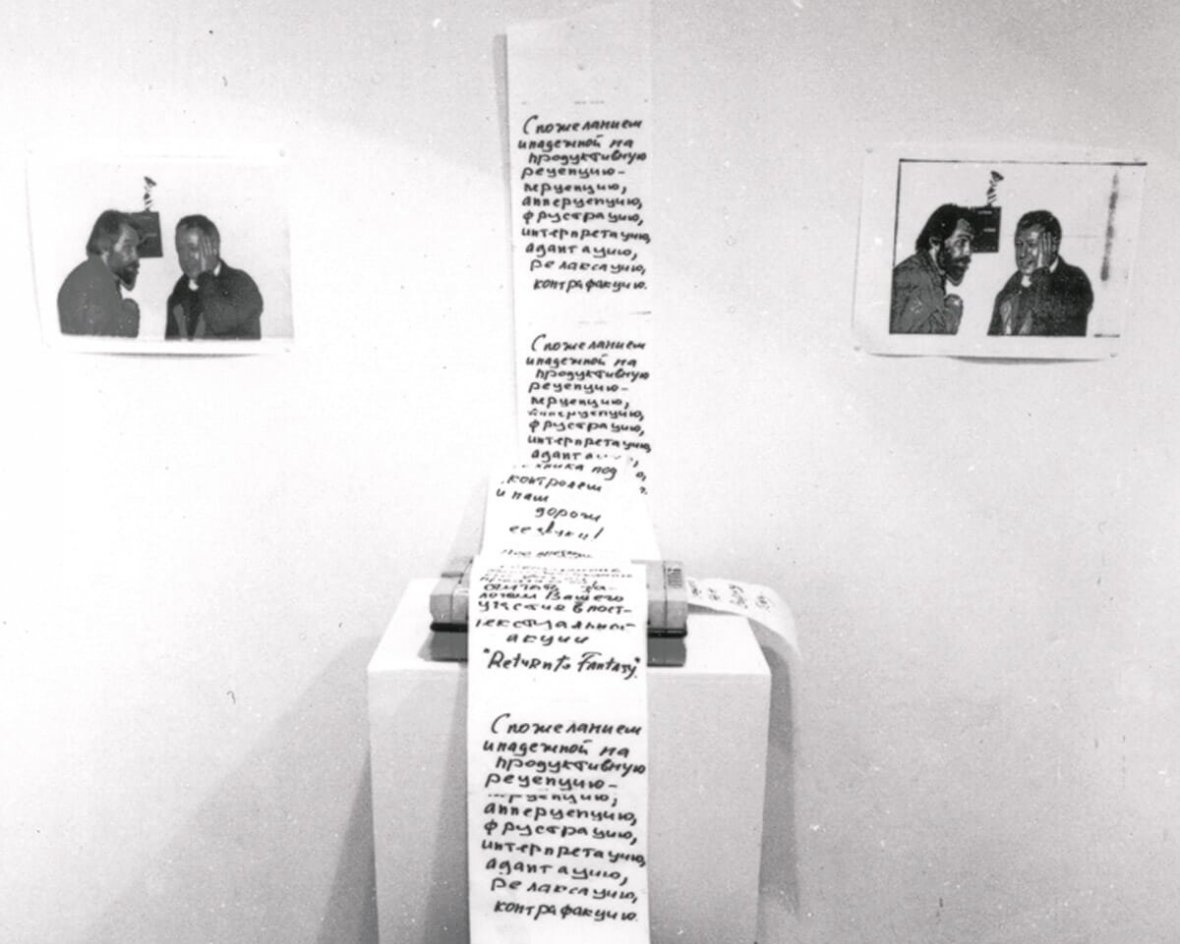 С пожеланием
и надеждой на
продуктивную
рецепцию-
перцепцию,
апперцепцию,
фрустрацию,
интерпретацию,
адаптацию,
релаксацию,
контрафакцию.
С пожеланием
и надеждой на
продуктивную
рецепцию-
перцепцию,
апперцепцию,
фрустрацию,
интерпретацию,
под
контролем
и нам
дороги
ее звуки!
Вашего
участие в пост-
текстуальной
акции
"Return to Fantasy".
С пожеланием
и надеждой на
продуктивную
рецепцию-
перцепцию,
апперцепцию,
фрустрацию,
интерпретацию,
адаптацию,
релаксацию,
контрафакцию.